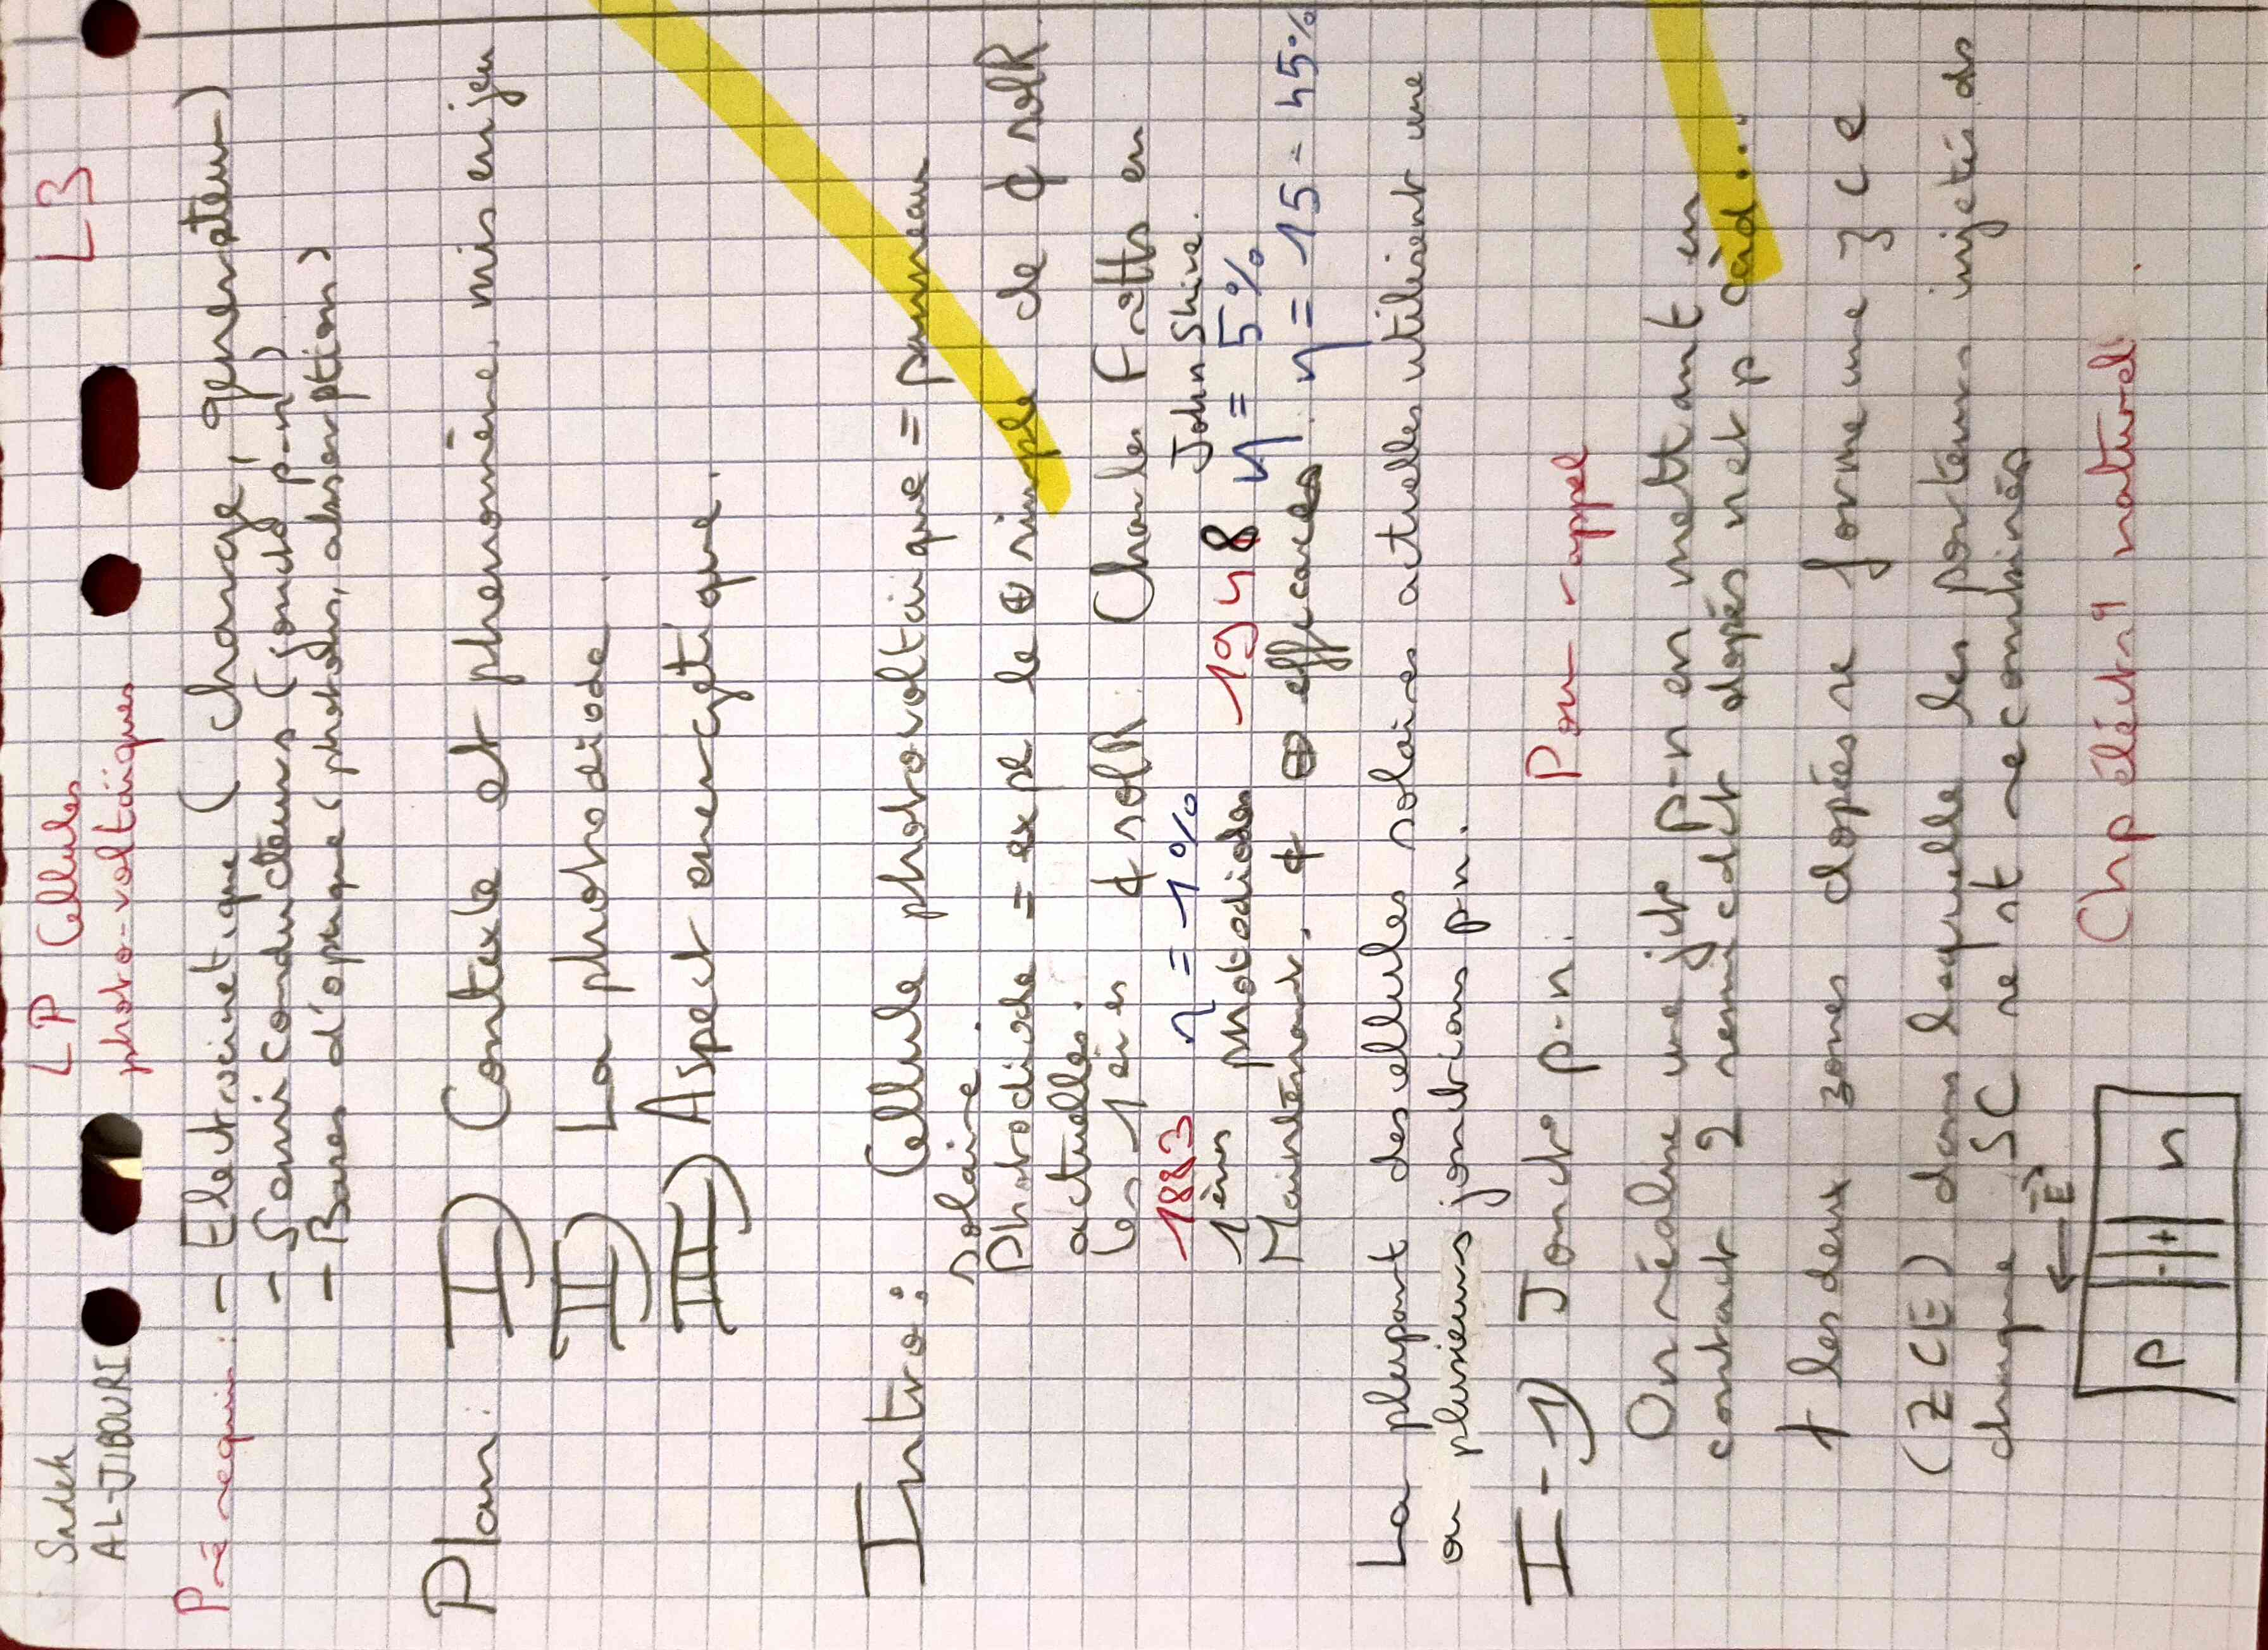 Sadek
AL-JIBOURI
LP Cellules
photo-voltaïques
L3
Pré requis : - Electrocinetique (charge, generateur)
- Semi conducteurs (jonct° p-n)
- Bases d'optique (photons, absorption)
Plan : I) Contexte et phenomène mis en jeu
II) La photodiode.
III) Aspect energétique.
Intro : Cellule photovoltaique = panneau
solaire.
Photodiode = exple le ⊕ simple de ¢ solR
actuelles.
Les 1ères ¢ solR Charles Fritts en
1883 η = 1% 1948 John Shive.
1ères photodiodes η = 5%
Maintenant, ¢ ⊕ efficaces. η = 15 - 45%
La plupart des cellules solaires actuelles utilisent une
ou plusieurs jonctions pn.
I-1) Jonct° p-n. Pour rappel
On réalise une jct° p-n en mettant en
contact 2 semi cdct dopés n et p càd...
les deux zones dopées se forme une Z C E
(ZCE) dans laquelle les porteurs injectés ds
chaque SC se st recombinés
E
P - + n
Chp électrq naturel